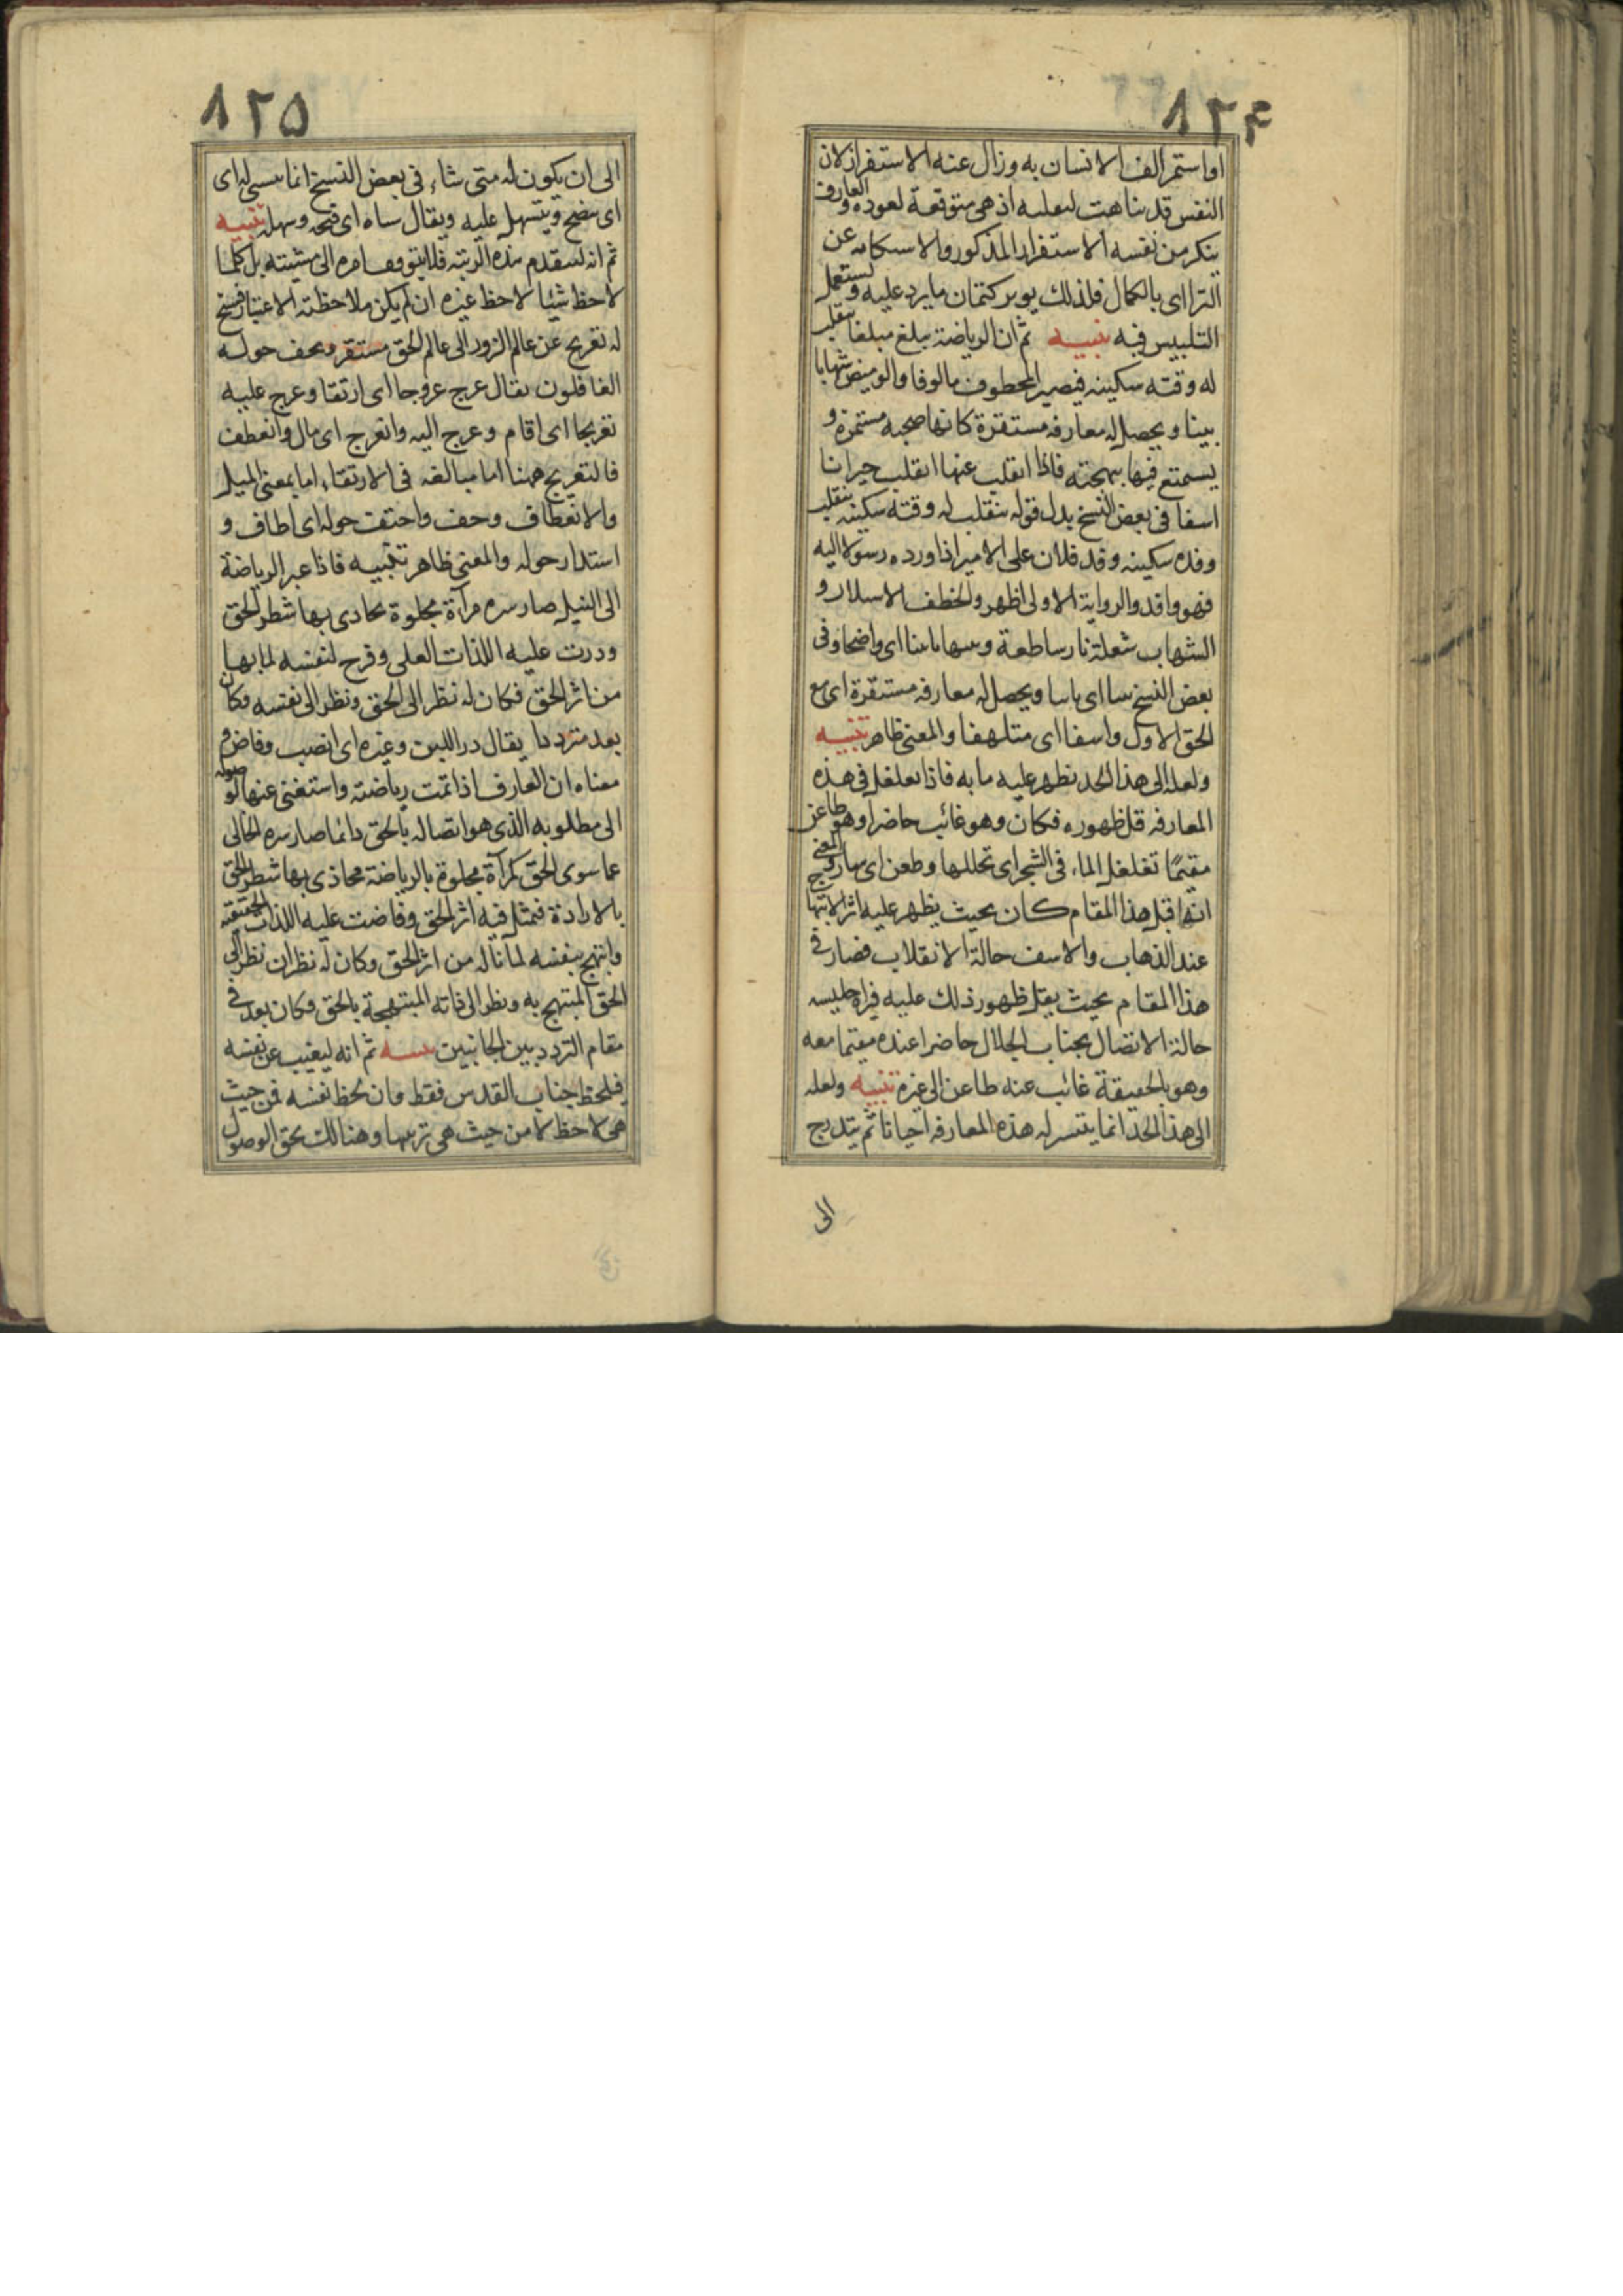 ٨٢٤
او استمر الف الانسان به وزال عنه الاستفزاز لان
النفس قد تاهت لتعليه اذ هى متوقعة لعوده والعارف
ينكر من نفسه الاستفزاز المذكور والاستكانه عن
الترااى بالكمال فلذلك يوثر كتمان ما يرد عليه ويستعمل
التلبيس فيه تنبيه ثم ان الرياضة يبلغ مبلغا ينقلب
له وقته سكينه فيصير المخطوف مالوفا والوميض شهابا
بينا ويحصل له معارفه مستقرة كانها صحبه مستمرة و
يستمتع فيها ببهجته فاذا انقلب عنها انقلب حيرانا
اسفا فى بعض النسخ بدل قوله ينقلب له وقته سكينه ينقلب
وفده سكينه وفد فلان على الامير اذا ورده رسولا اليه
فهو وافد والرواية الاولى اظهر والخطف الاستلاب و
الشهاب شعلة نار ساطعة وشهابا بينا اى واضحا وفى
بعض النسخ ثابتا ويحصل له معارفه مستقرة اى مع
الحق الاول واسفا اى متلهفا والمعنى ظاهر تنبيه
ولعله الى هذا الحد يظهر عليه ما به فاذا تغلغل فى هذه
المعارفه قل ظهوره فكان وهو غائب حاضرا وهو ظاعن
مقيمًا تغلغل الماء فى الشجر اى تخللها وظعن اى سار والمعنى
انه قبل هذا المقام كان بحيث يظهر عليه اثر الابتهاج
عند الذهاب والاسف حالة الانقلاب فصار فى
هذا المقام بحيث يقل ظهور ذلك عليه فيراه جليسه
حالة الاتصال بجناب الجلال حاضرا عنده مقيما معه
وهو بالحقيقة غائب عنه ظاعن الى غيره تنبيه ولعله
الى هذا الحد انما يتيسر له هذه المعارفه احيانا ثم يتدرج
الى
٨٢٥
الى ان يكون له متى شاء فى بعض النسخ انما يتسنى له اى
اى ينفتح ويتسهل عليه ويقال سناه اى فتحه وسهله تنبيه
ثم انه ليتقدم هذه الرتبة فلا يتوقف امره الى مشيته بل كلما
لاحظ شيئا لاحظ غيره ان لم يكن ملاحظته الاعتبار فيسنح
له تعريج عن عالم الزور الى عالم الحق مستقر ويحف حوله
الغافلون يقال عرج عروجا اى ارتقا وعرج عليه
تعريجا اى اقام وعرج اليه وانعرج اى مال وانعطف
فالتعريج ههنا اما مبالغه فى الارتقاء اما بمعنى الميل
والانعطاف وحف واحتفت حوله اى اطاف و
استدار حوله والمعنى ظاهر تنبيه فاذا عبر الرياضة
الى النيل صار سره مرآة مجلوة يحاذى بها شطر الحق
ودرت عليه اللذات العلى وفرح لنفسه لما بها
من اثر الحق فكان له نظر الى الحق ونظر الى نفسه وكان
بعد مترددا يقال در اللبن وغيره اى انصب وفاض و
معناه ان العارف اذا تمت رياضته واستغنى عنها لوصوله
الى مطلوبه الذى هو اتصاله بالحق دائما صار سره الخالى
عما سوى الحق كمرآة مجلوة بالرياضة محاذى بها شطر الحق
بالارادة فتمثل فيه اثر الحق وفاضت عليه اللذات الحقيقيه
وابتهج بنفسه لما ناله من اثر الحق وكان له نظران نظر الى
الحق المبتهج به ونظر الى ذاته المبتهجة بالحق وكان بعد فى
مقام التردد بين الجانبين تنبيه ثم انه ليغيب عن نفسه
فيلحظ جناب القدس فقط وان لحظ نفسه فمن حيث
هى لاحظة لا من حيث هى بزينتها وهناك يحق الوصول